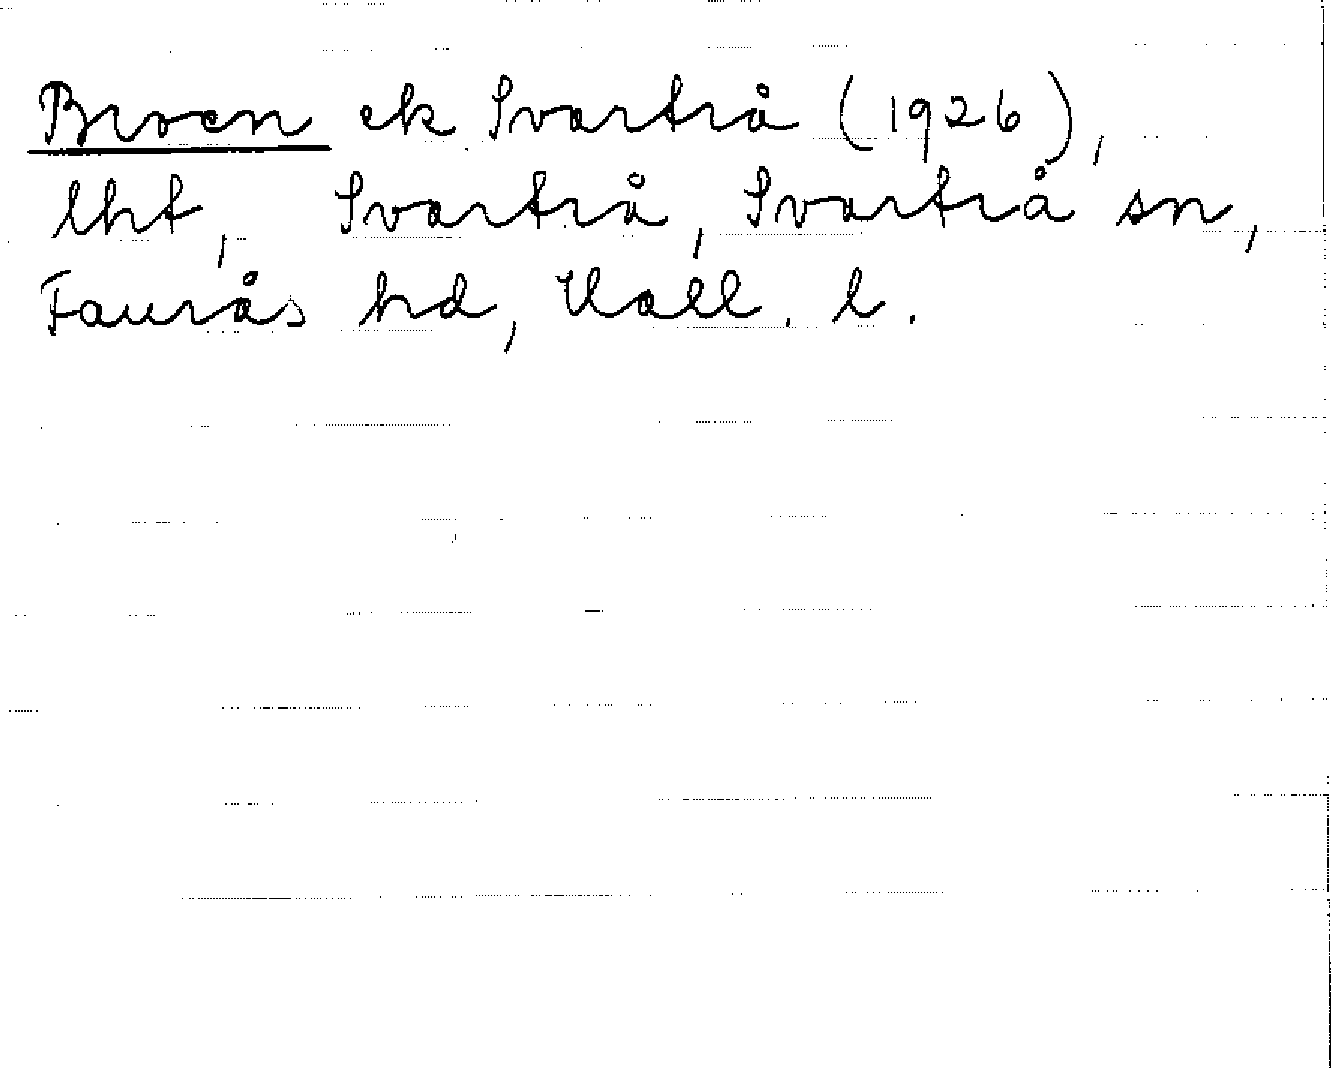 Broen ek Svartrå (1926),
lht, Svartrå, Svartrå sn,
Faurås hd, Hall. l.